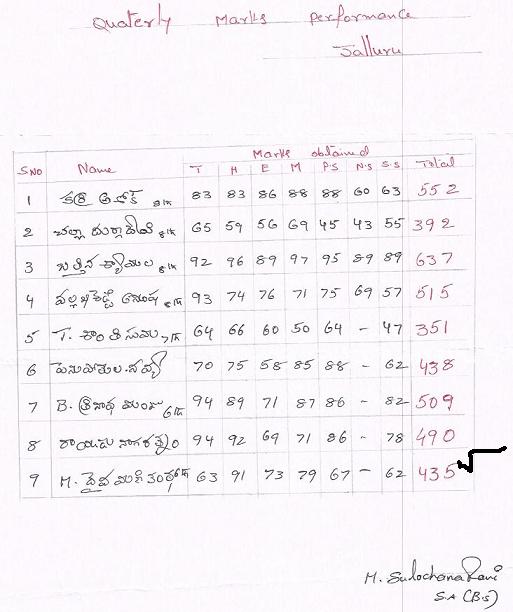 Quaterly Marks Performance
Jalluru
Marks obtained
SNO Name T H E M P.S N.S S.S Total
1 కర్రి అశోక్ 8th 83 83 86 88 88 60 63 552
2 చల్లా దుర్గాదేవి 8th 65 59 56 69 45 43 55 392
3 బత్తిన శ్యామల 8th 92 96 89 97 95 89 89 637
4 8th 93 74 76 71 75 69 57 515
5 T. శాంతి సుమ 7th 64 66 60 50 64 - 47 351
6 70 75 58 85 88 - 62 438
7 B. శ్రీనాధ 6th 94 89 71 87 86 - 82 509
8 రాయుడు నాగరత్నం 94 92 69 71 86 - 78 490
9 M. 63 91 73 79 67 - 62 435
M. Sulochana Rani
S.A (B.S)